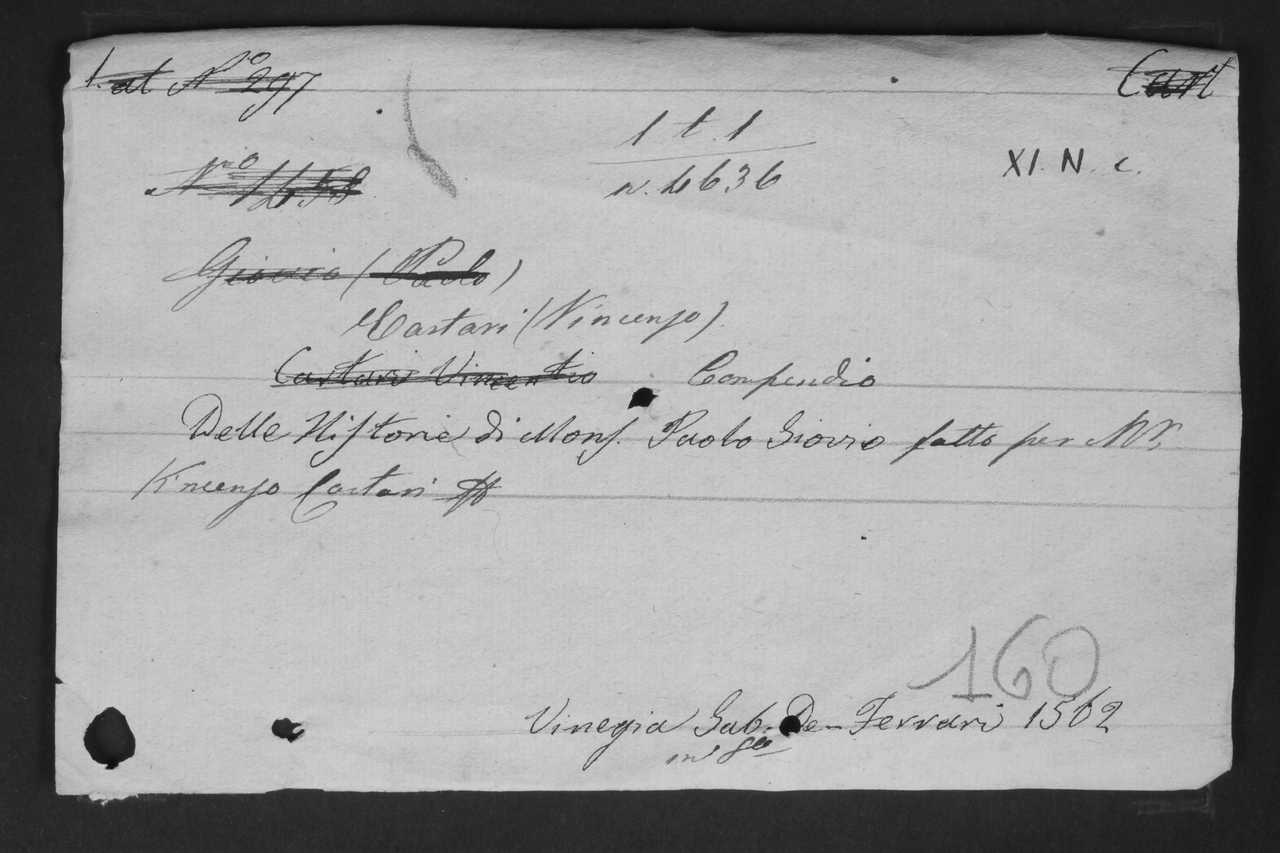 1. at Nº 297 Cart
1 t. 1
XI. N. c.
Nro 1658 n. 4636
Giovio (Paolo)
Cartari (Vincenzo).
Cartari Vincentio Compendio
Delle Historie di Mons. Paolo Giovio fatto per Mr.
Vincenzo Cartari
160
Vinegia Gab. De Ferrari 1562
in 8º